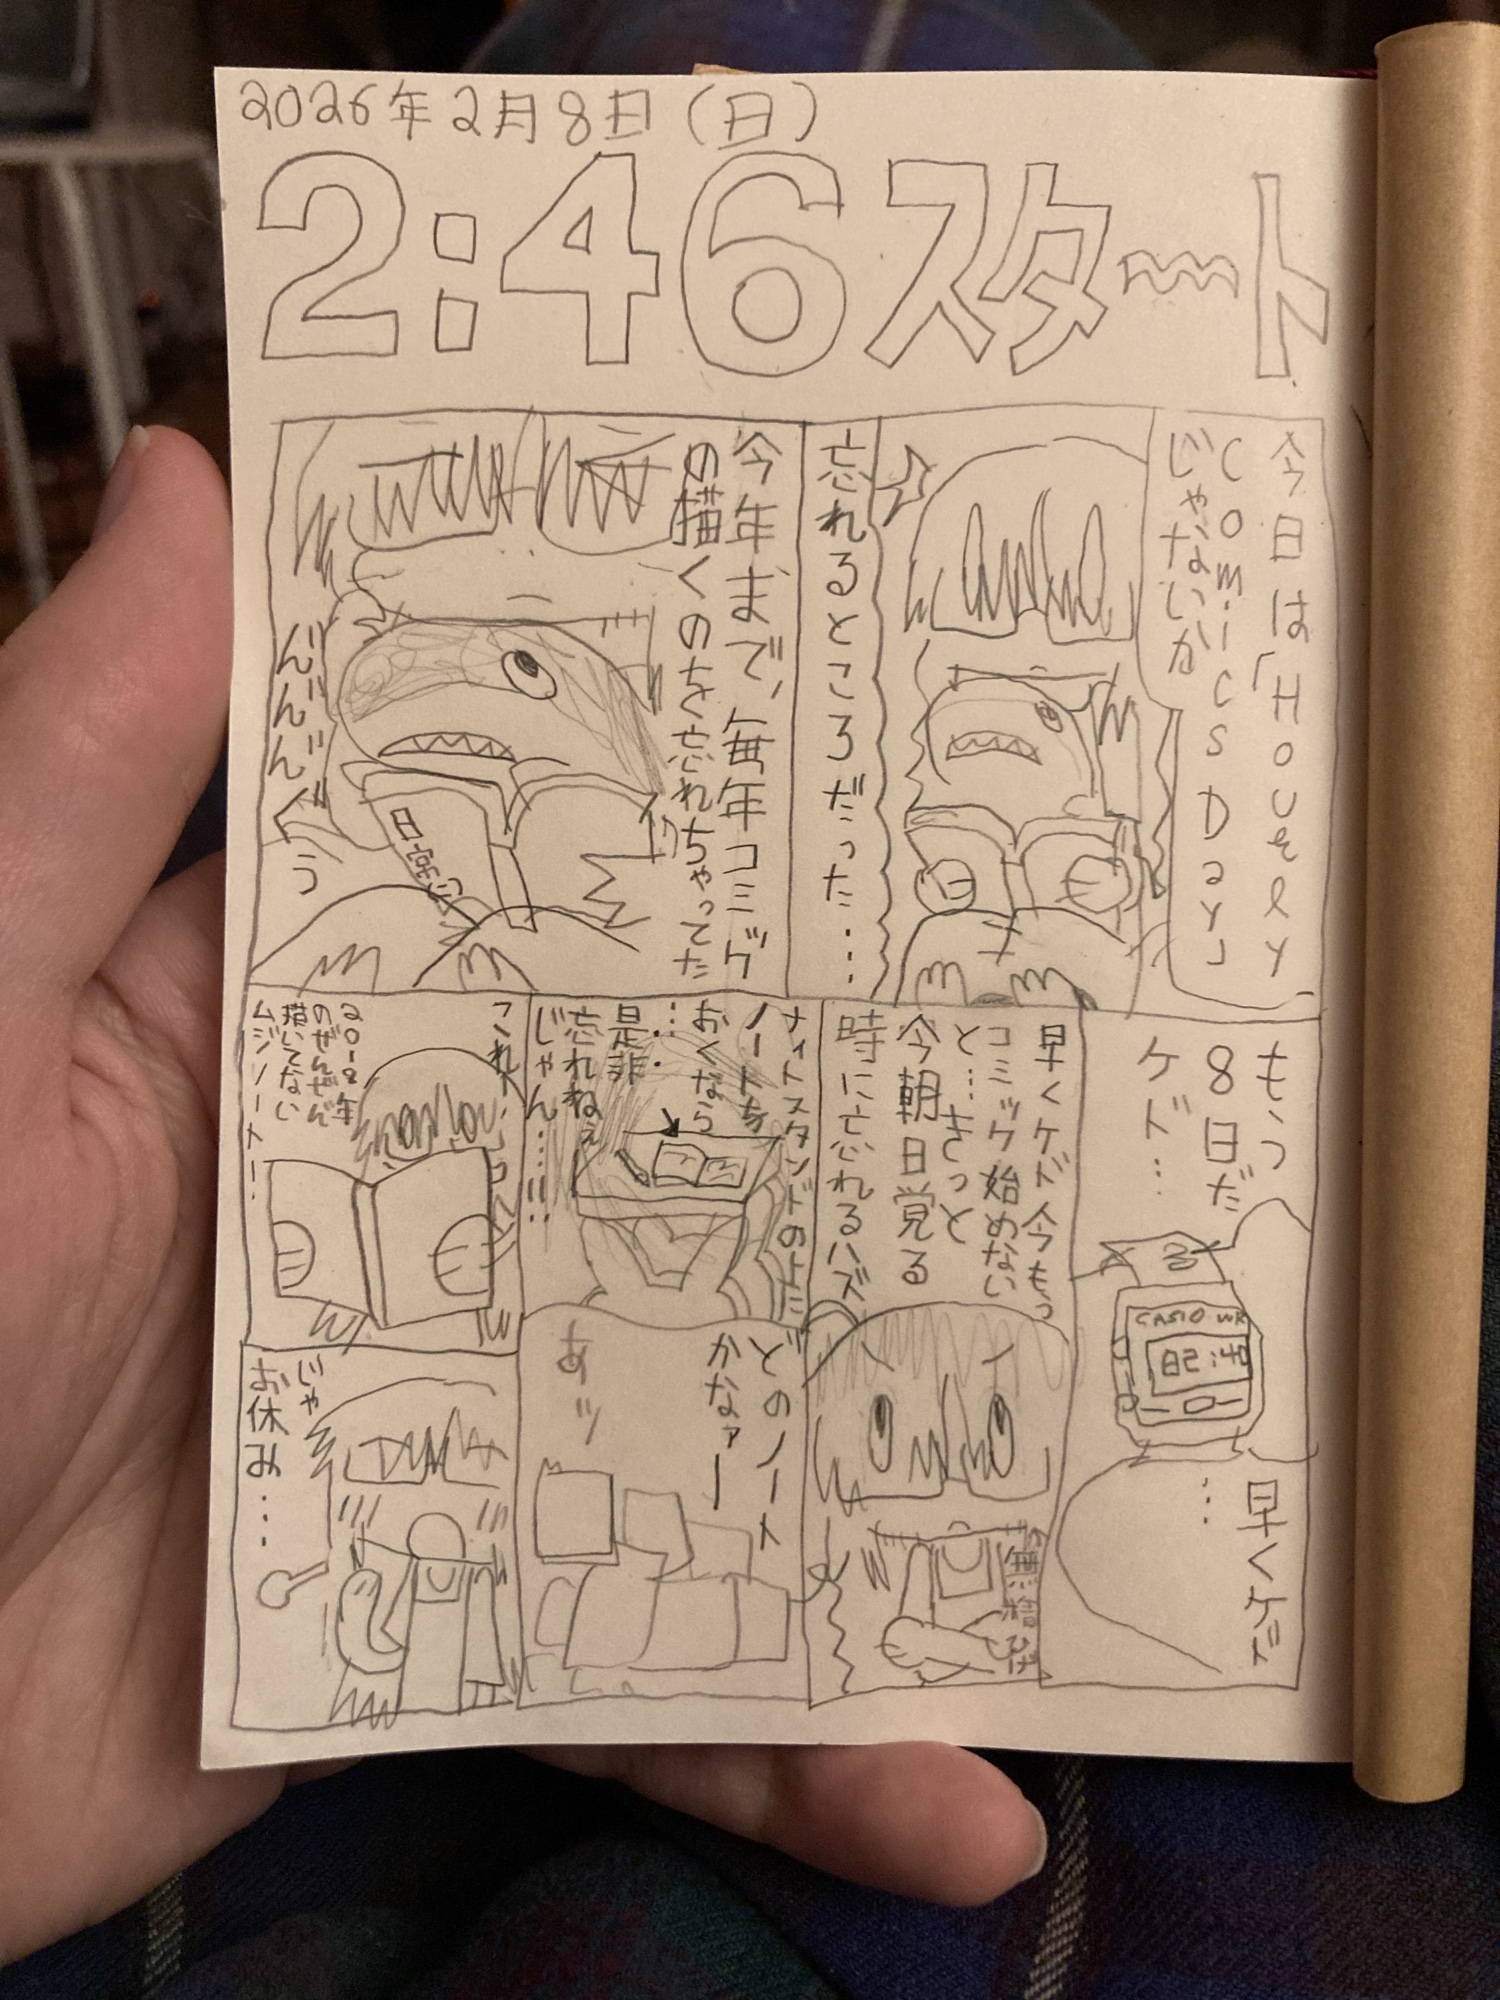 2026年2月8日(日)
2:46スタート
今日は「Hourly
Comics Day」
じゃないか
忘れるところだった…
今年まで、毎年コミック
の描くのを忘れちゃってた
んんんぐ
う
もう
8日だ
ケド…
CASIO WR
早くケド
…
早くケド今もっ
コミック始めない
と…きっと
今朝目覚る
時に忘れるハズ
無精ひげ
ナイトスタンドの上に
ノートを
おくなら
……
是非
忘れねぇ
じゃん…!!
どのノート
かなァー
あッ
これ!
2018年
のぜんぜん
描いてない
ムジノート!
じゃ
お休み…